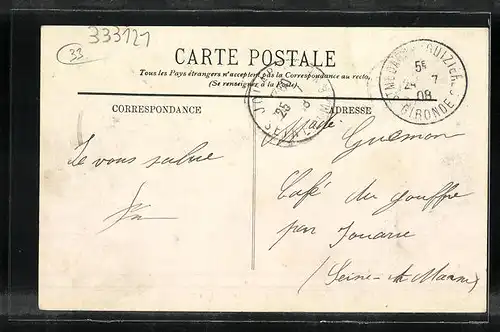 333121
33
CARTE POSTALE
Tous les Pays étrangers n'acceptent pas la Correspondance au recto,
(Se renseigner à la Poste).
CORRESPONDANCE
ADRESSE
JOUARRE
25
SEINE
ST MEDARD GUIZIERES
5E
24 7
08
GIRONDE
Je vous salue
Guémon
Café du gouffre
par Jouarre
(Seine-et-Marne)